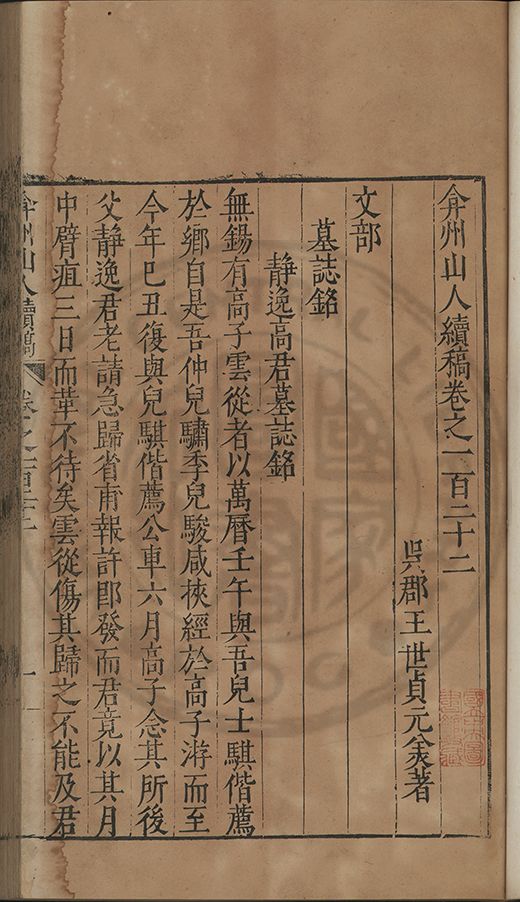 弇州山人續稿卷之一百二十二
吳郡王世貞元美著
文部
墓誌銘
靜逸高君墓誌銘
無錫有高子雲從者以萬曆壬午與吾兒士騏偕薦
於鄉自是吾仲兒驌季兒駿咸挾經於高子游而至
今年巳丑復與兒騏偕薦公車六月高子念其所後
父靜逸君老請急歸省甫報許卽發而君竟以其月
中臂疽三日而革不待矣雲從傷其歸之不能及君
弇州山人續稿
卷之一百二十二
一